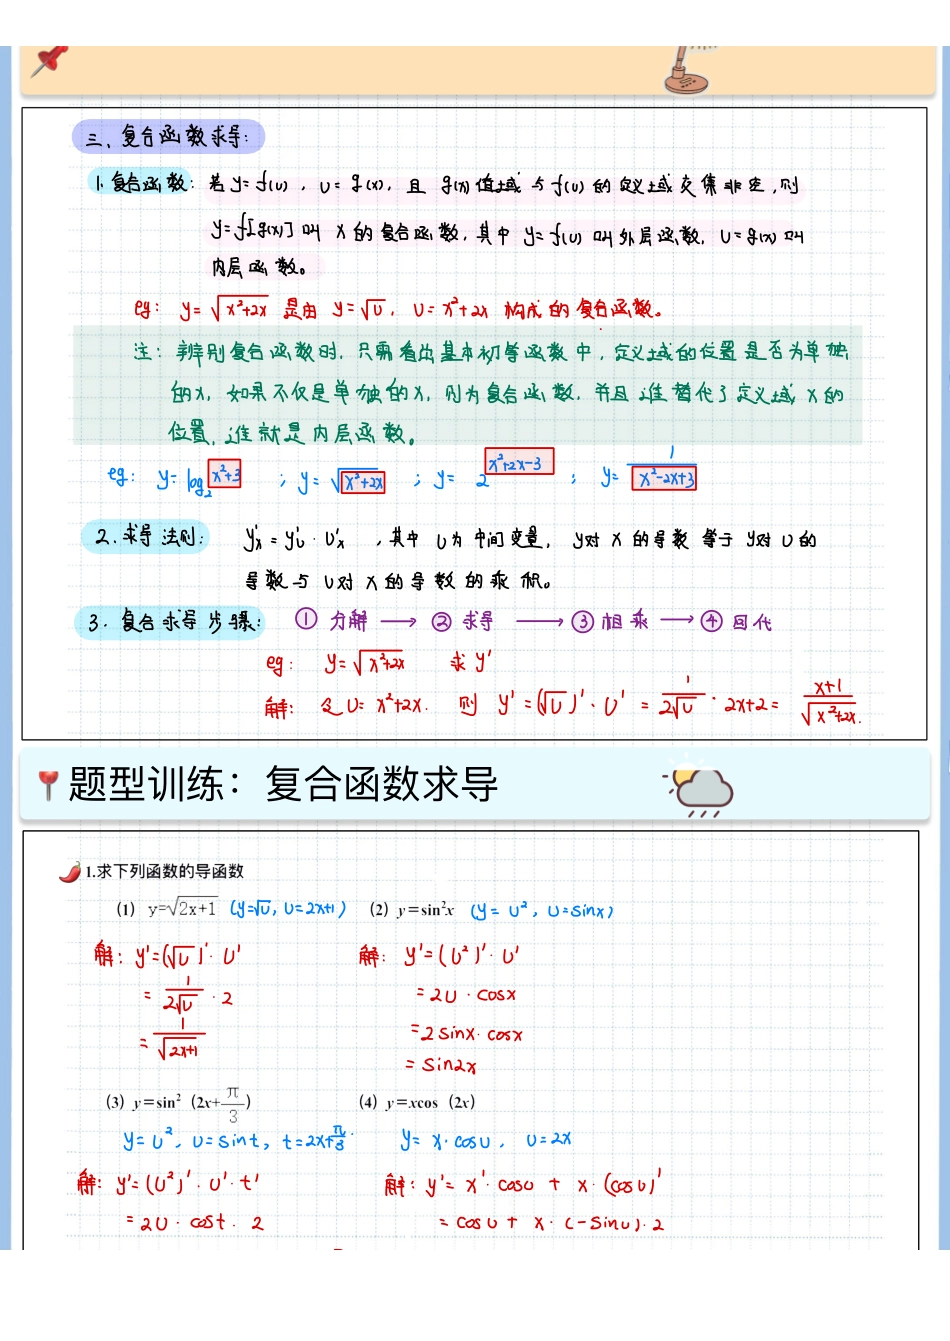 三、复合函数求导：
1.复合函数：若 y=f(u)，u=g(x)，且 g(x)值域与f(u)的定义域交集非空，则
y=f[g(x)]叫 x的复合函数，其中 y=f(u) 叫外层函数，u=g(x)叫
内层函数。
eg： y=√(x²+2x) 是由 y=√u，u=x²+2x 构成的复合函数。
注：辨别复合函数时，只需看出基本初等函数中，定义域的位置是否为单独
的x，如果不仅是单独的x，则为复合函数，并且谁替代了定义域x的
位置，谁就是内层函数。
eg： y=log₂(x²+3) ； y=√(x²+2x) ； y=2^(x²+2x-3) ； y=1/(x²-2x+3)
2.求导法则： y'x=y'u·u'x ，其中 u为中间变量， y对 x 的导数 等于 y对 u的
导数与 u对 x 的导数的乘积。
3.复合求导步骤： ①分解 → ②求导 → ③相乘 → ④回代
eg： y=√(x²+2x) 求y'
解： 令u=x²+2x. 则 y'=(√u)'·u'=1/(2√u)·2x+2=(x+1)/√(x²+2x).
题型训练：复合函数求导
1.求下列函数的导函数
（1）y=√(2x+1) (y=√u，u=2x+1) （2）y＝sin²x (y=u²，u=sinx)
解：y'=(√u)'·u' 解：y'=(u²)'·u'
=1/(2√u)·2 =2u·cosx
=1/√(2x+1) =2sinx·cosx
=sin2x
（3）y＝sin²（2x+π/3） （4）y＝xcos（2x）
y=u²，u=sint，t=2x+π/3. y=x·cosu，u=2x
解：y'=(u²)'·u'·t' 解：y'=x'·cosu+x·(cosu)'
=2u·cost·2 =cosu+x·(-sinu)·2